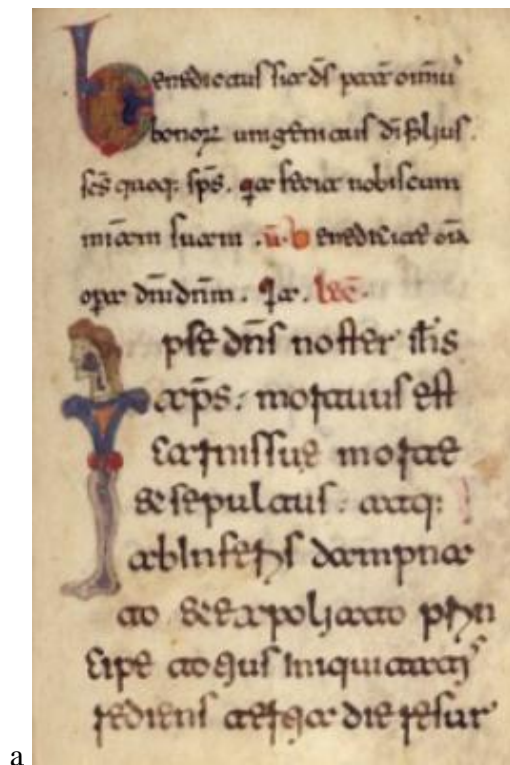 benedictus sit ds pater omniū
bonoꝝ unigenitus di filius.
scs quoq: sps. qa fecit nobiscum
miam suam . v. benedicite
opera dni dnm. Lec.
Ipse dns noster ihs
xps: mortuus est
carnis sue morte
et sepultus. atq:
ab inferis dampna
to et expoliato prin
cipe iniquitatis
rediens tertia die resur
a